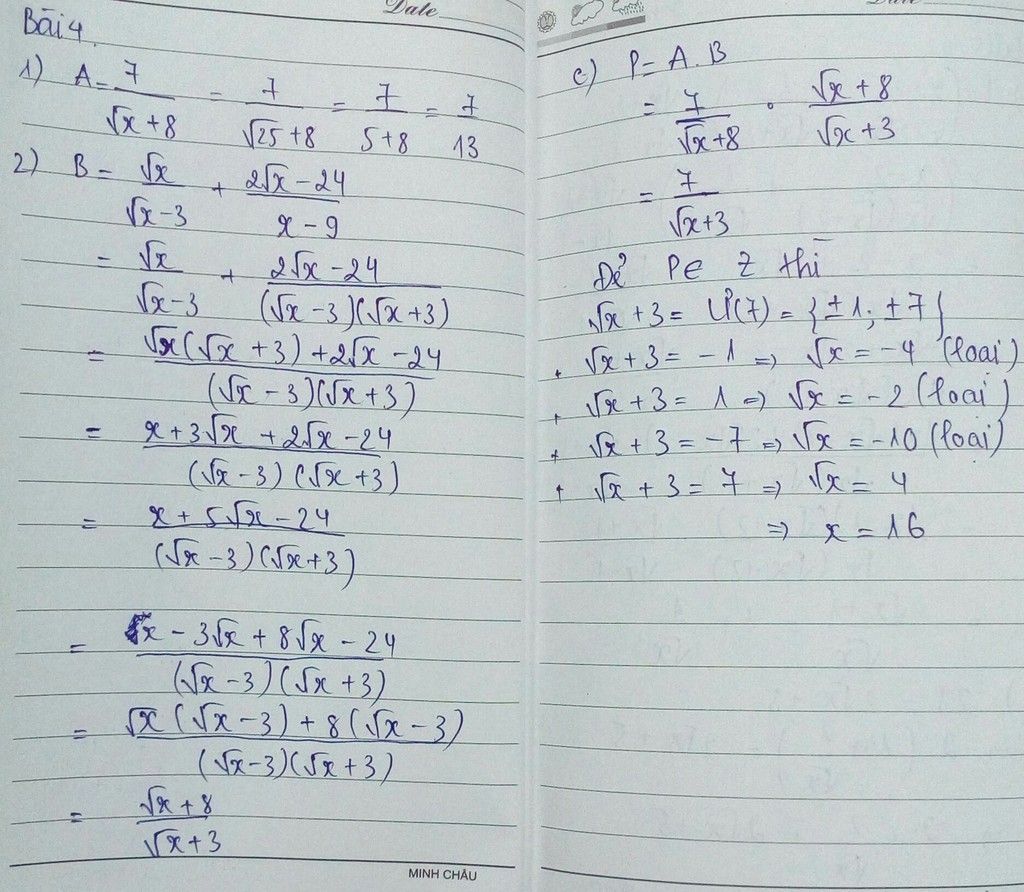 Date
Bài 4.
1) A = 7/(√x + 8) = 7/(√25 + 8) = 7/(5 + 8) = 7/13
2) B = √x/(√x - 3) + (2√x - 24)/(x - 9)
= √x/(√x - 3) + (2√x - 24)/((√x - 3)(√x + 3))
= (√x(√x + 3) + 2√x - 24)/((√x - 3)(√x + 3))
= (x + 3√x + 2√x - 24)/((√x - 3)(√x + 3))
= (x + 5√x - 24)/((√x - 3)(√x + 3))
= (x - 3√x + 8√x - 24)/((√x - 3)(√x + 3))
= (√x(√x - 3) + 8(√x - 3))/((√x - 3)(√x + 3))
= (√x + 8)/(√x + 3)
MINH CHÂU
c) P = A.B
= 7/(√x + 8) . (√x + 8)/(√x + 3)
= 7/(√x + 3)
Để P ∈ Z thì
√x + 3 = Ư(7) = {±1; ±7}
+ √x + 3 = -1 => √x = -4 (loại)
+ √x + 3 = 1 => √x = -2 (loại)
+ √x + 3 = -7 => √x = -10 (loại)
+ √x + 3 = 7 => √x = 4
=> x = 16